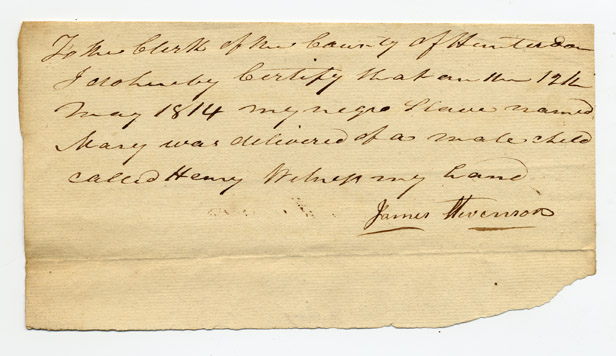 To the Clerk of the County of Hunterdon
I do hereby Certify that on the 12th
May 1814 my negro Slave named
Mary was delivered of a male child
called Henry Witness my hand
James Stevenson